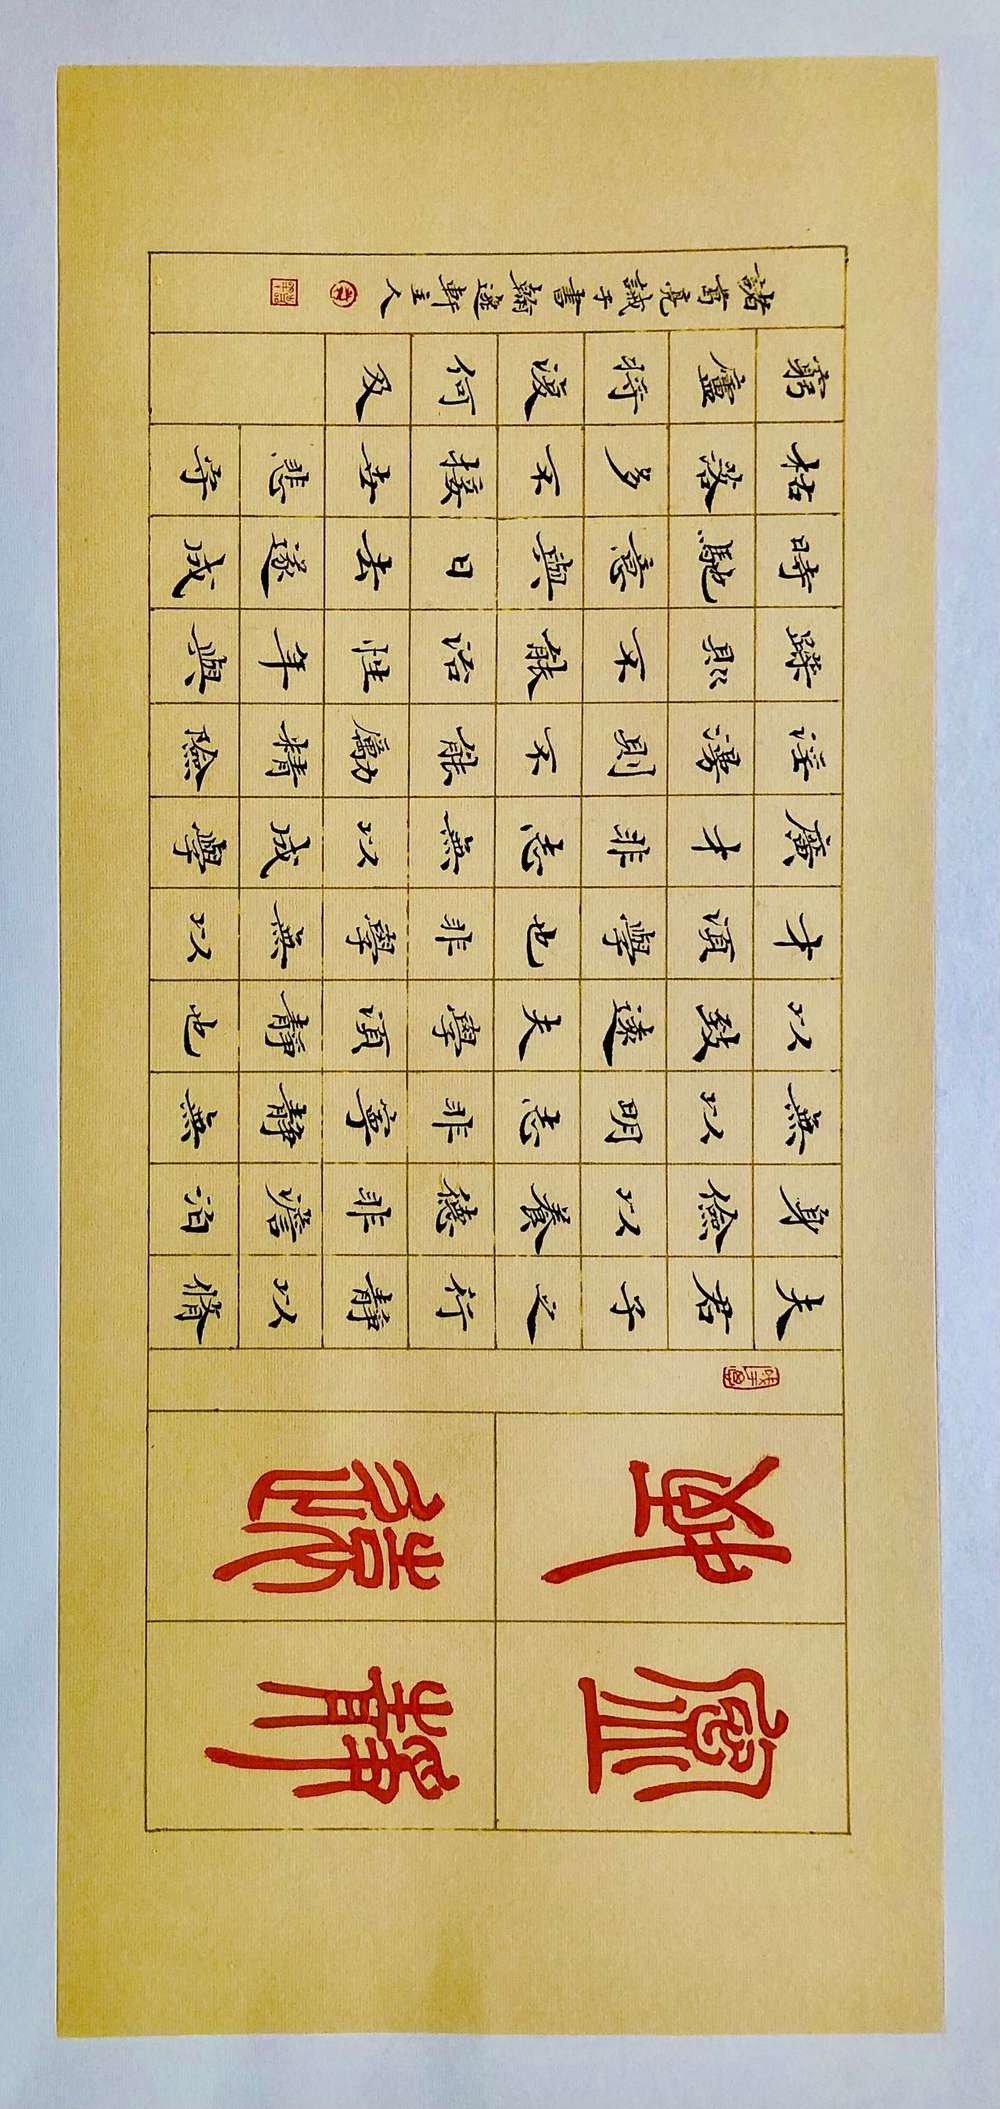 寧靜
致遠
夫君子之行靜以脩
身儉以養德非澹泊
無以明志非寧靜無
以致遠夫學須靜也
才須學也非學無以
廣才非志無以成學
淫漫則不能勵精險
躁則不能治性年與
時馳意與日去遂成
枯落多不接世悲守
窮廬將復何及
諸葛亮誡子書翰逸軒主人